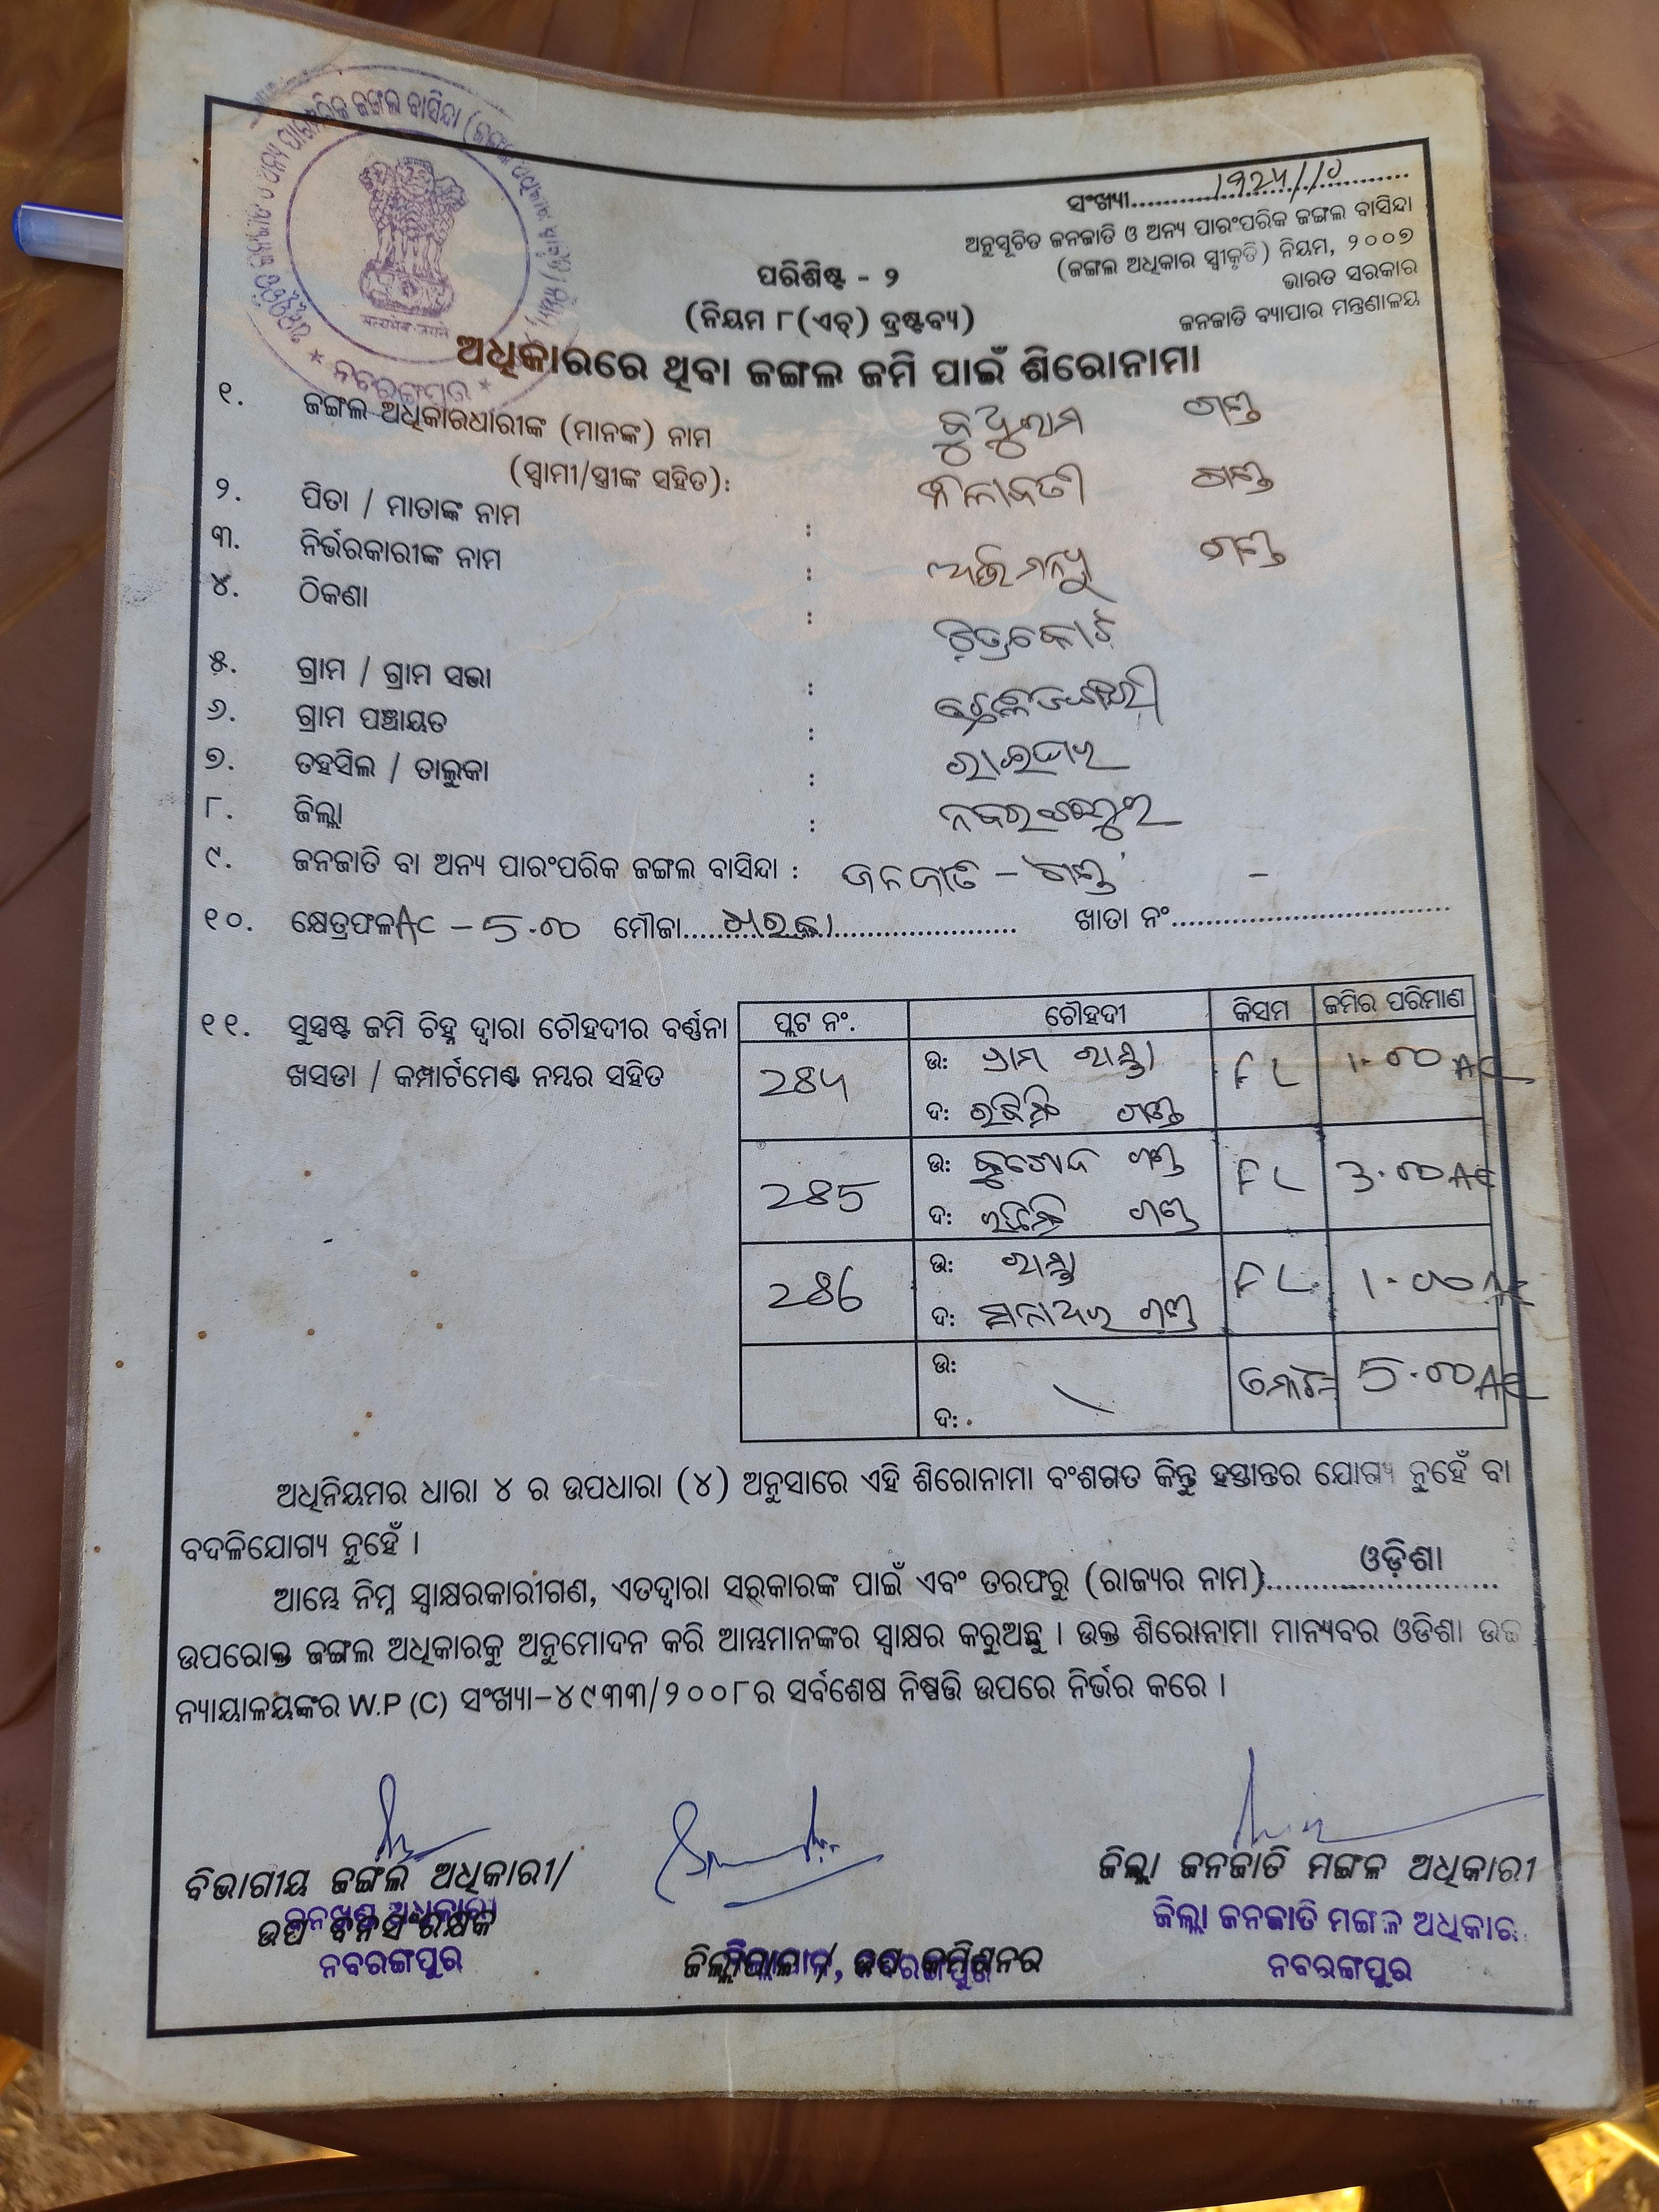 ସଂଖ୍ୟା
ଅନୁସୂଚିତ ଜନଜାତି ଓ ଅନ୍ୟ ପାରଂପରିକ ଜଙ୍ଗଲ ବାସିନ୍ଦା
(ଜଙ୍ଗଲ ଅଧିକାର ସ୍ୱୀକୃତି) ନିୟମ, ୨୦୦୭
ଭାରତ ସରକାର
ଜନଜାତି ବ୍ୟାପାର ମନ୍ତ୍ରଣାଳୟ
ପରିଶିଷ୍ଟ - ୨
(ନିୟମ ୮(ଏଚ୍) ଦ୍ରଷ୍ଟବ୍ୟ)
ଅଧିକାରରେ ଥିବା ଜଙ୍ଗଲ ଜମି ପାଇଁ ଶିରୋନାମା
୧. ଜଙ୍ଗଲ ଅଧିକାରଧାରୀଙ୍କ (ମାନଙ୍କ) ନାମ ଗଣ୍ଡ
(ସ୍ୱାମୀ/ସ୍ତ୍ରୀଙ୍କ ସହିତ): କଳାବତୀ ଗଣ୍ଡ
୨. ପିତା / ମାତାଙ୍କ ନାମ : ଅଭିମନ୍ୟୁ ଗଣ୍ଡ
୩. ନିର୍ଭରକାରୀଙ୍କ ନାମ :
୪. ଠିକଣା :
୫. ଗ୍ରାମ / ଗ୍ରାମ ସଭା :
୬. ଗ୍ରାମ ପଞ୍ଚାୟତ :
୭. ତହସିଲ / ତାଲୁକା : ରାଇଘର
୮. ଜିଲ୍ଲା : ନବରଂଗପୁର
୯. ଜନଜାତି ବା ଅନ୍ୟ ପାରଂପରିକ ଜଙ୍ଗଲ ବାସିନ୍ଦା : ଜନଜାତି – ଗଣ୍ଡ –
୧୦. କ୍ଷେତ୍ରଫଳ AC – 5.00 ମୌଜା ଖାତା ନଂ
୧୧. ସୁସ୍ପଷ୍ଟ ଜମି ଚିହ୍ନ ଦ୍ୱାରା ଚୌହଦୀର ବର୍ଣ୍ଣନା
ଖସଡା / କମ୍ପାର୍ଟମେଣ୍ଟ ନମ୍ବର ସହିତ
ପ୍ଲଟ ନଂ. ଚୌହଦୀ କିସମ ଜମିର ପରିମାଣ
ଉ: ଗ୍ରାମ ରାସ୍ତା FL 1.00 AC
ଦ: ଗଣ୍ଡ
285 ଉ: ଗଣ୍ଡ FL 3.00 AC
ଦ: ଗଣ୍ଡ
286 ଉ: ରାସ୍ତା FL 1.00 AC
ଦ: ଗଣ୍ଡ
ଉ: ମୋଟ= 5.00 AC
ଦ:
ଅଧିନିୟମର ଧାରା ୪ ର ଉପଧାରା (୪) ଅନୁସାରେ ଏହି ଶିରୋନାମା ବଂଶଗତ କିନ୍ତୁ ହସ୍ତାନ୍ତର ଯୋଗ୍ୟ ନୁହେଁ ବା
ବଦଳିଯୋଗ୍ୟ ନୁହେଁ ।
ଆମ୍ଭେ ନିମ୍ନ ସ୍ୱାକ୍ଷରକାରୀଗଣ, ଏତଦ୍ୱାରା ସରକାରଙ୍କ ପାଇଁ ଏବଂ ତରଫରୁ (ରାଜ୍ୟର ନାମ) ଓଡ଼ିଶା
ଉପରୋକ୍ତ ଜଙ୍ଗଲ ଅଧିକାରକୁ ଅନୁମୋଦନ କରି ଆମ୍ଭମାନଙ୍କର ସ୍ୱାକ୍ଷର କରୁଅଛୁ । ଉକ୍ତ ଶିରୋନାମା ମାନ୍ୟବର ଓଡିଶା ଉଚ୍ଚ
ନ୍ୟାୟାଳୟଙ୍କର W.P (C) ସଂଖ୍ୟା-୪୯୩୩/୨୦୦୮ର ସର୍ବଶେଷ ନିଷ୍ପତ୍ତି ଉପରେ ନିର୍ଭର କରେ ।
ବିଭାଗୀୟ ଜଙ୍ଗଲ ଅଧିକାରୀ/
ଉପ ବନସଂରକ୍ଷକ
ନବରଙ୍ଗପୁର
ଜିଲ୍ଲାପାଳ / ଉପ କମିଶନର
ଜିଲ୍ଲା ଜନଜାତି ମଙ୍ଗଳ ଅଧିକାରୀ
ଜିଲ୍ଲା ଜନଜାତି ମଙ୍ଗଳ ଅଧିକାରୀ
ନବରଙ୍ଗପୁର